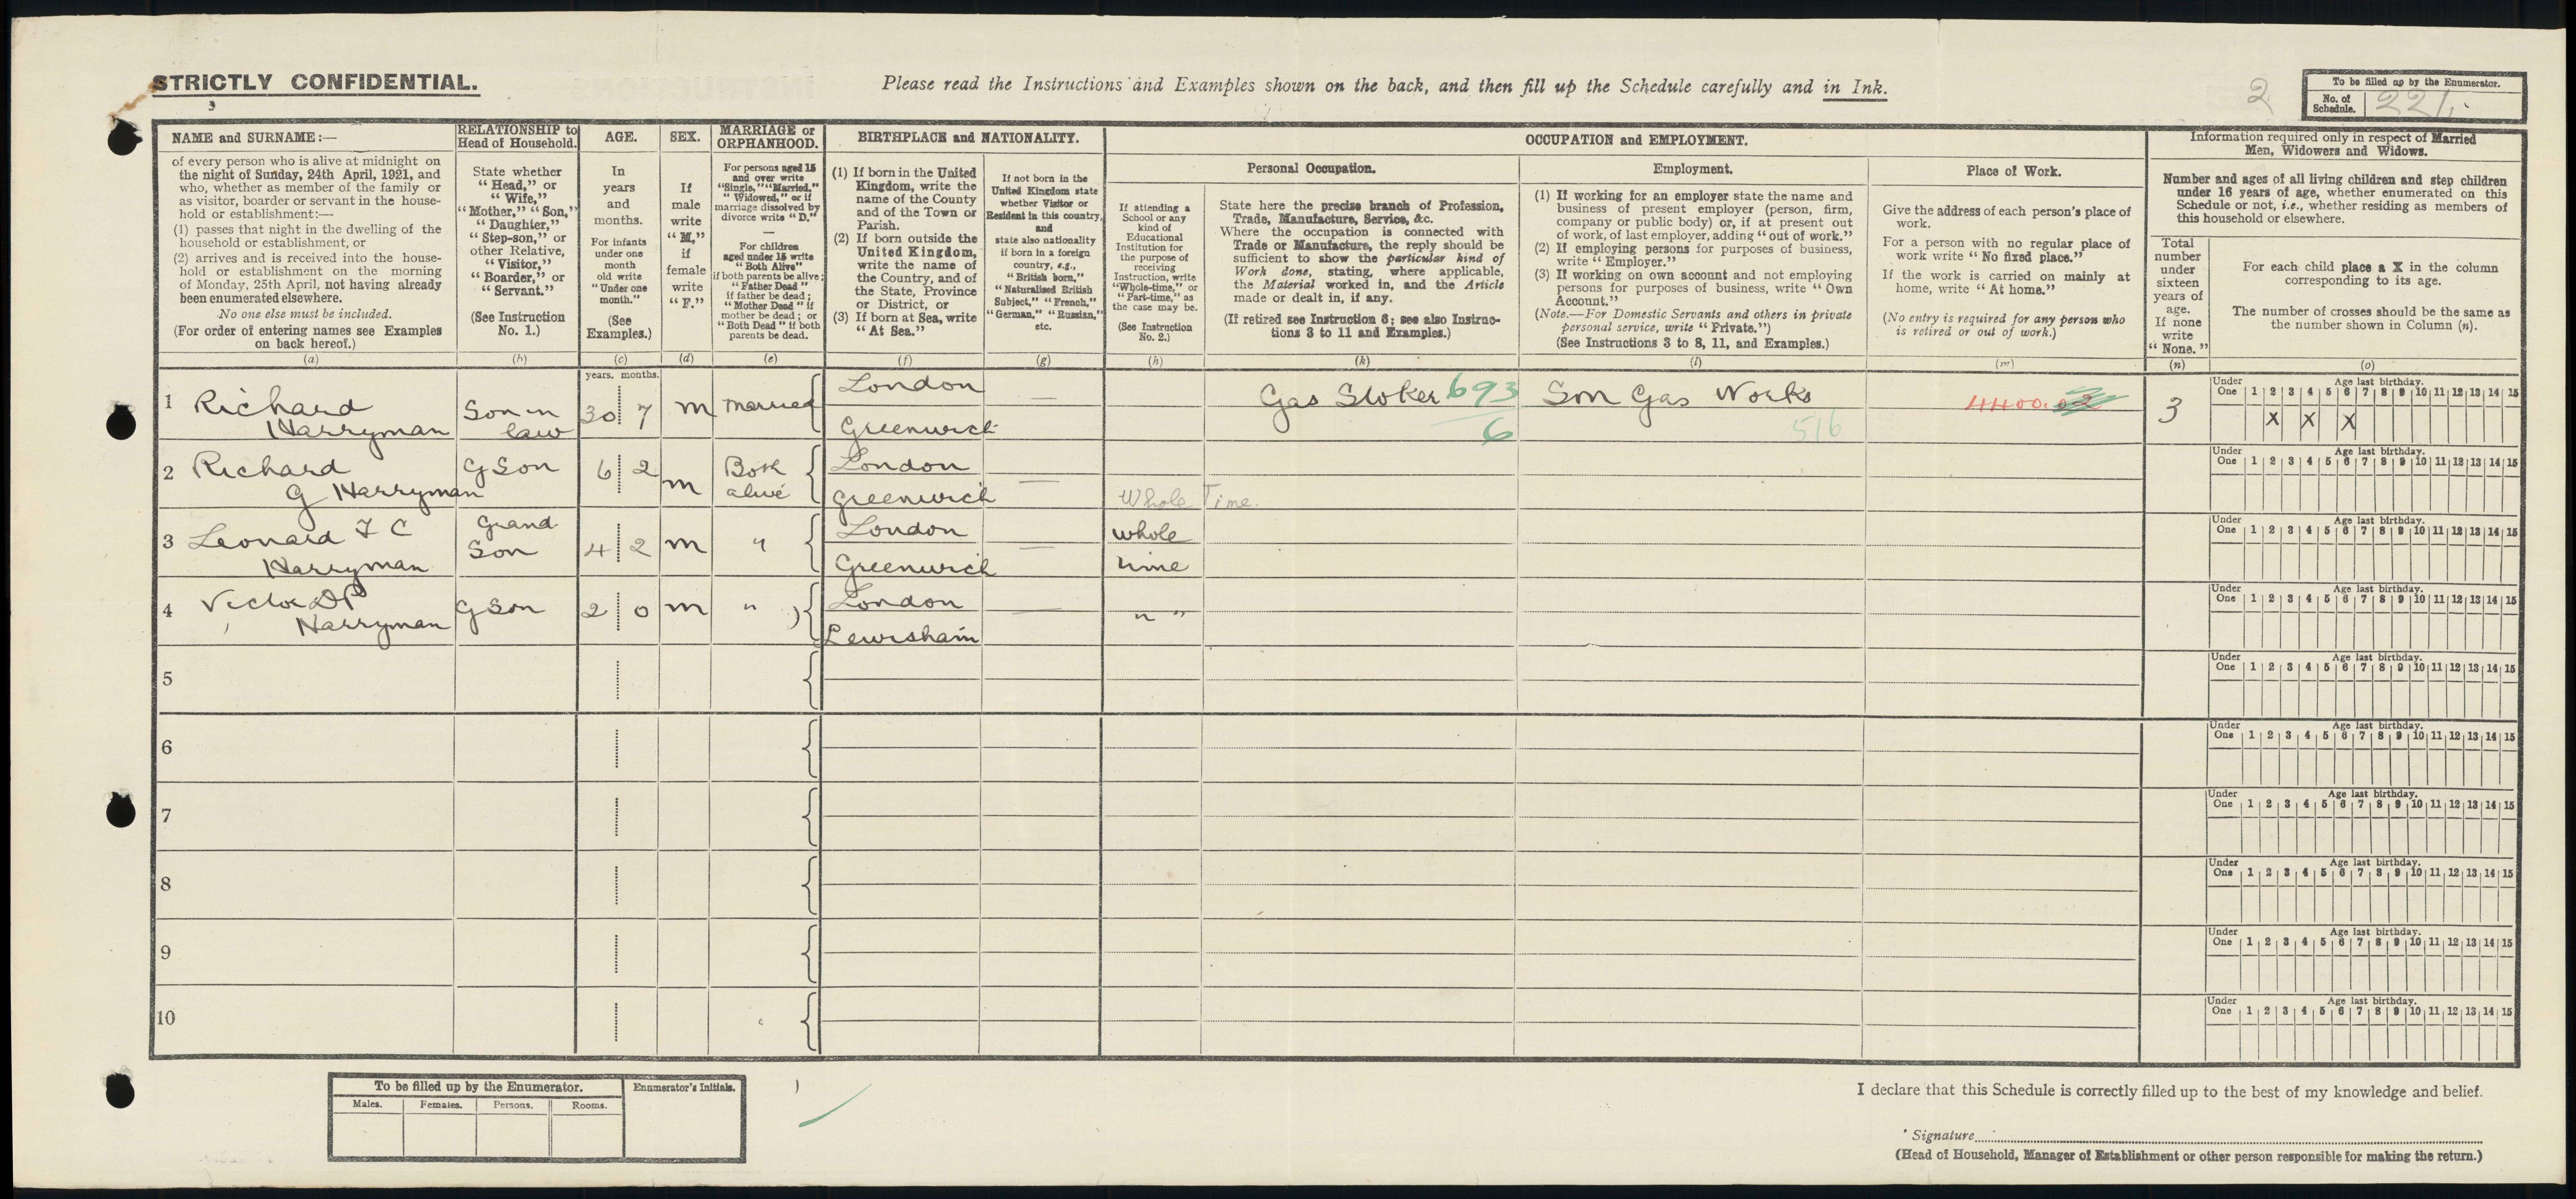 STRICTLY CONFIDENTIAL.
Please read the Instructions and Examples shown on the back, and then fill up the Schedule carefully and in Ink.
2
To be filled up by the Enumerator.
No. of Schedule. 221
NAME and SURNAME:—
of every person who is alive at midnight on
the night of Sunday, 24th April, 1921, and
who, whether as member of the family or
as visitor, boarder or servant in the house-
hold or establishment:—
(1) passes that night in the dwelling of the
household or establishment, or
(2) arrives and is received into the house-
hold or establishment on the morning
of Monday, 25th April, not having already
been enumerated elsewhere.
No one else must be included.
(For order of entering names see Examples
on back hereof.)
(a)
RELATIONSHIP to
Head of Household.
State whether
"Head," or
"Wife,"
"Mother," "Son,"
"Daughter,"
"Step-son," or
other Relative,
"Visitor,"
"Boarder," or
"Servant."
(See Instruction
No. 1.)
(b)
AGE.
In
years
and
months.
For infants
under one
month
old write
"Under one
month."
(See
Examples.)
(c)
SEX.
If
male
write
"M,"
if
female
write
"F."
(d)
MARRIAGE or
ORPHANHOOD.
For persons aged 15
and over write
"Single," "Married,"
"Widowed," or if
marriage dissolved by
divorce write "D."
For children
aged under 15 write
"Both Alive"
if both parents be alive;
"Father Dead"
if father be dead;
"Mother Dead" if
mother be dead; or
"Both Dead" if both
parents be dead.
(e)
BIRTHPLACE and NATIONALITY.
(1) If born in the United
Kingdom, write the
name of the County
and of the Town or
Parish.
(2) If born outside the
United Kingdom,
write the name of
the Country, and of
the State, Province
or District, or
(3) If born at Sea, write
"At Sea."
(f)
If not born in the
United Kingdom state
whether Visitor or
Resident in this country,
and
state also nationality
if born in a foreign
country, e.g.,
"British born,"
"Naturalised British
Subject," "French,"
"German," "Russian,"
etc.
(g)
OCCUPATION and EMPLOYMENT.
If attending a
School or any
kind of
Educational
Institution for
the purpose of
receiving
Instruction, write
"Whole-time," or
"Part-time," as
the case may be.
(See Instruction
No. 2.)
(h)
Personal Occupation.
State here the precise branch of Profession,
Trade, Manufacture, Service, &c.
Where the occupation is connected with
Trade or Manufacture, the reply should be
sufficient to show the particular kind of
Work done, stating, where applicable,
the Material worked in, and the Article
made or dealt in, if any.
(If retired see Instruction 6; see also Instruc-
tions 3 to 11 and Examples.)
(k)
Employment.
(1) If working for an employer state the name and
business of present employer (person, firm,
company or public body) or, if at present out
of work, of last employer, adding "out of work."
(2) If employing persons for purposes of business,
write "Employer."
(3) If working on own account and not employing
persons for purposes of business, write "Own
Account."
(Note.—For Domestic Servants and others in private
personal service, write "Private.")
(See Instructions 3 to 8, 11, and Examples.)
(l)
Place of Work.
Give the address of each person's place of
work.
For a person with no regular place of
work write "No fixed place."
If the work is carried on mainly at
home, write "At home."
(No entry is required for any person who
is retired or out of work.)
(m)
Information required only in respect of Married
Men, Widowers and Widows.
Number and ages of all living children and step children
under 16 years of age, whether enumerated on this
Schedule or not, i.e., whether residing as members of
this household or elsewhere.
Total
number
under
sixteen
years of
age.
If none
write
"None."
(n)
For each child place a X in the column
corresponding to its age.
The number of crosses should be the same as
the number shown in Column (n).
(o)
years. months.
1 Richard Harryman Son in law 30 7 m married London Greenwich — Gas Stoker 693 6 Son Gas Works 516 4400.02 3
Under One Age last birthday. 1 2 3 4 5 6 7 8 9 10 11 12 13 14 15
X X X
2 Richard G Harryman G Son 6 2 m Both alive London Greenwich — Whole Time.
Under One Age last birthday. 1 2 3 4 5 6 7 8 9 10 11 12 13 14 15
3 Leonard F C Harryman Grand Son 4 2 m " London Greenwich — whole time
Under One Age last birthday. 1 2 3 4 5 6 7 8 9 10 11 12 13 14 15
4 Victor D P Harryman G Son 2 0 m " London Lewisham — " "
Under One Age last birthday. 1 2 3 4 5 6 7 8 9 10 11 12 13 14 15
5
Under One Age last birthday. 1 2 3 4 5 6 7 8 9 10 11 12 13 14 15
6
Under One Age last birthday. 1 2 3 4 5 6 7 8 9 10 11 12 13 14 15
7
Under One Age last birthday. 1 2 3 4 5 6 7 8 9 10 11 12 13 14 15
8
Under One Age last birthday. 1 2 3 4 5 6 7 8 9 10 11 12 13 14 15
9
Under One Age last birthday. 1 2 3 4 5 6 7 8 9 10 11 12 13 14 15
10
Under One Age last birthday. 1 2 3 4 5 6 7 8 9 10 11 12 13 14 15
To be filled up by the Enumerator.
Enumerator's Initials.
Males. Females. Persons. Rooms.
I declare that this Schedule is correctly filled up to the best of my knowledge and belief.
* Signature
(Head of Household, Manager of Establishment or other person responsible for making the return.)